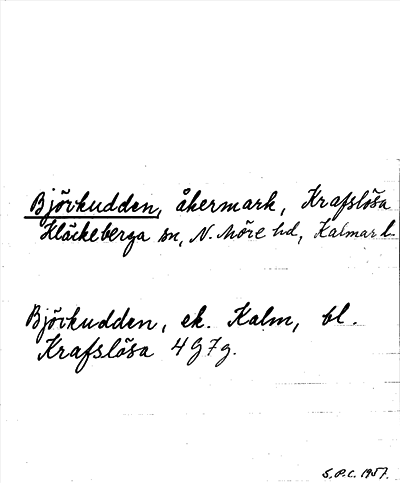 Björkudden, åkermark, Krafslösa
Kläckeberga sn, N. Möre hd, Kalmar l.
Björkudden, ek. Kalm, bl.
Krafslösa 4 G 7 g.
S.P.C. 1957.